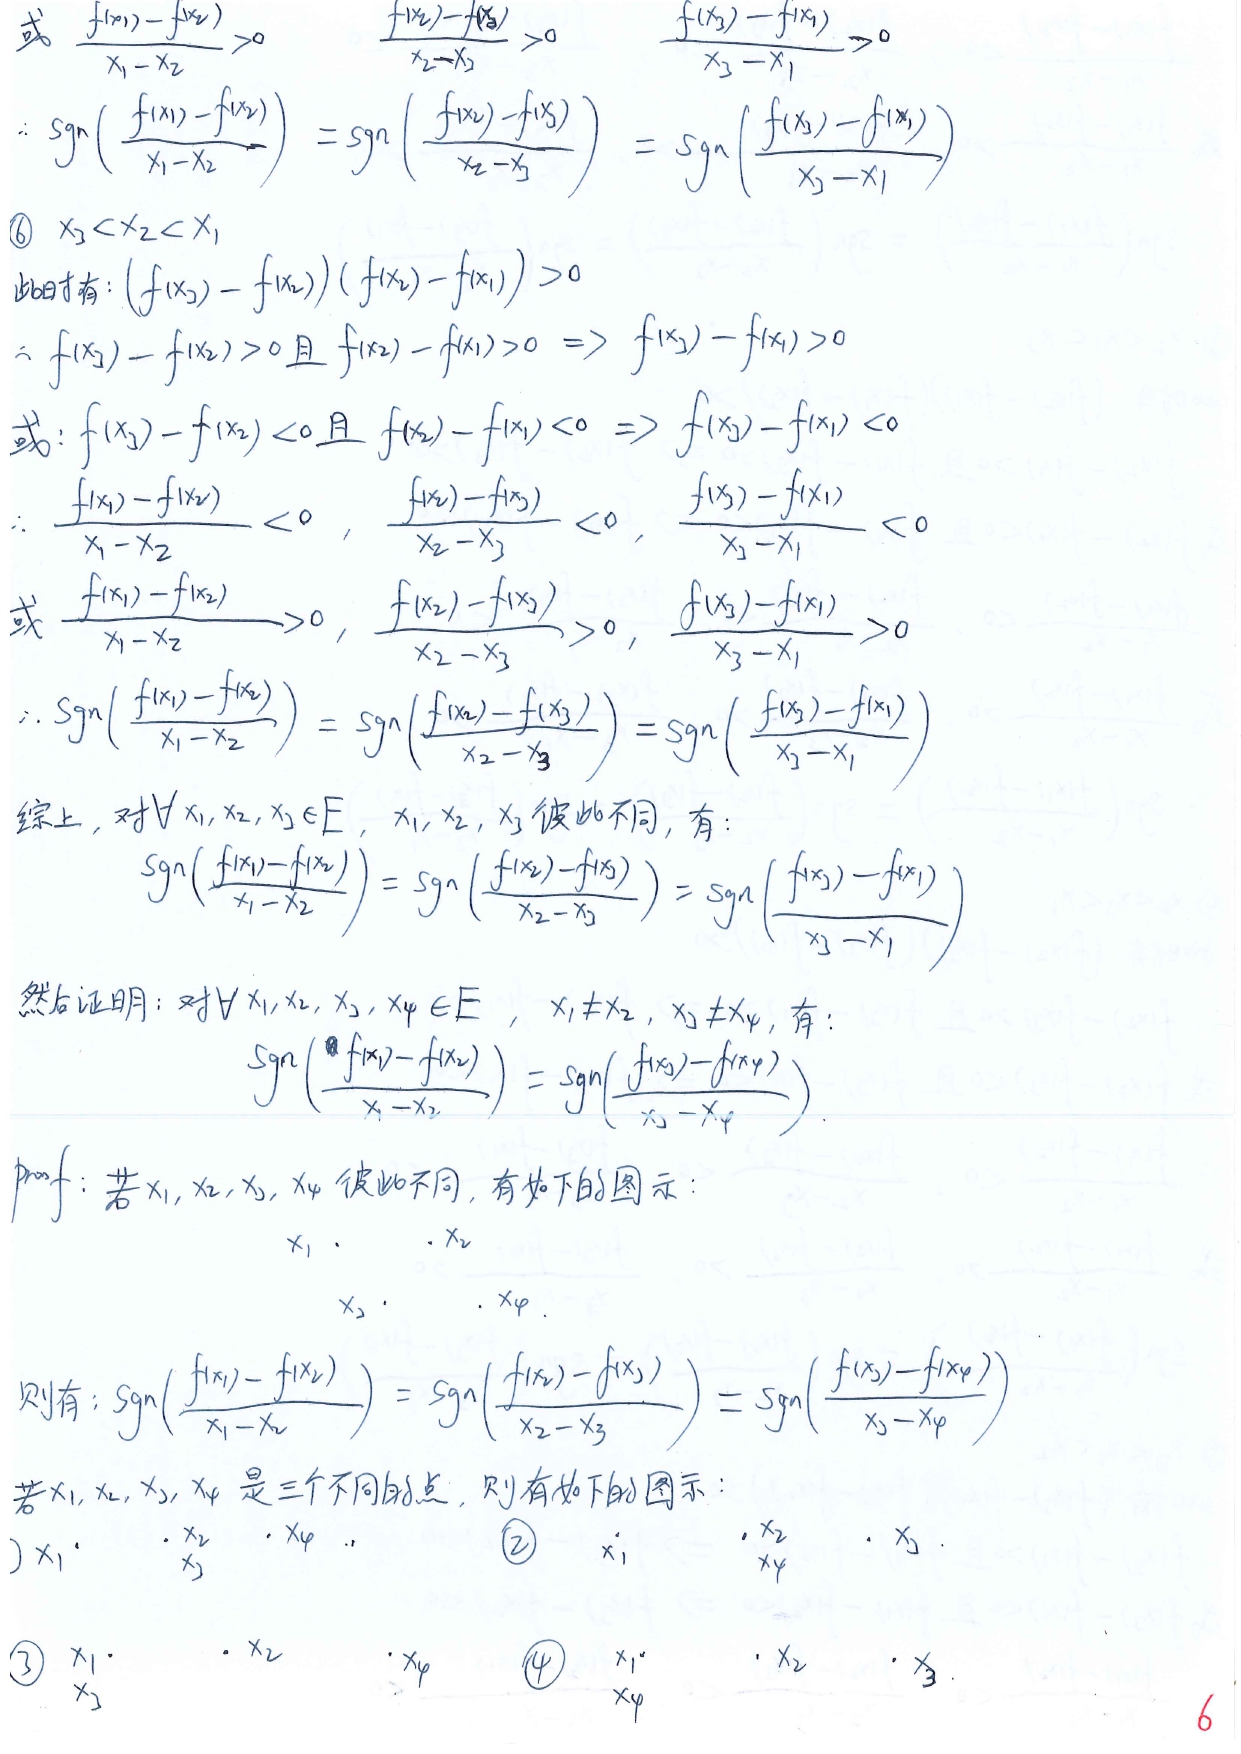 或 (f(x₁)-f(x₂))/(x₁-x₂) >0    (f(x₂)-f(x₃))/(x₂-x₃) >0    (f(x₃)-f(x₁))/(x₃-x₁) >0
∴ sgn((f(x₁)-f(x₂))/(x₁-x₂)) = sgn((f(x₂)-f(x₃))/(x₂-x₃)) = sgn((f(x₃)-f(x₁))/(x₃-x₁))
⑥ x₃<x₂<x₁
此时有: (f(x₃)-f(x₂))(f(x₂)-f(x₁))>0
∴ f(x₃)-f(x₂)>0 且 f(x₂)-f(x₁)>0 => f(x₃)-f(x₁)>0
或: f(x₃)-f(x₂)<0 且 f(x₂)-f(x₁)<0 => f(x₃)-f(x₁)<0
∴ (f(x₁)-f(x₂))/(x₁-x₂) <0, (f(x₂)-f(x₃))/(x₂-x₃) <0, (f(x₃)-f(x₁))/(x₃-x₁) <0
或 (f(x₁)-f(x₂))/(x₁-x₂) >0, (f(x₂)-f(x₃))/(x₂-x₃) >0, (f(x₃)-f(x₁))/(x₃-x₁) >0
∴ sgn((f(x₁)-f(x₂))/(x₁-x₂)) = sgn((f(x₂)-f(x₃))/(x₂-x₃)) = sgn((f(x₃)-f(x₁))/(x₃-x₁))
综上, 对∀x₁,x₂,x₃∈E, x₁,x₂,x₃彼此不同, 有:
sgn((f(x₁)-f(x₂))/(x₁-x₂)) = sgn((f(x₂)-f(x₃))/(x₂-x₃)) = sgn((f(x₃)-f(x₁))/(x₃-x₁))
然后证明: 对∀x₁,x₂,x₃,x₄∈E, x₁≠x₂, x₃≠x₄, 有:
sgn((f(x₁)-f(x₂))/(x₁-x₂)) = sgn((f(x₃)-f(x₄))/(x₃-x₄)).
proof: 若x₁,x₂,x₃,x₄彼此不同, 有如下的图示:
x₁ ·    · x₂
x₃ ·    · x₄.
则有: sgn((f(x₁)-f(x₂))/(x₁-x₂)) = sgn((f(x₂)-f(x₃))/(x₂-x₃)) = sgn((f(x₃)-f(x₄))/(x₃-x₄))
若x₁,x₂,x₃,x₄是三个不同的点, 则有如下的图示:
) x₁ ·    · x₂    · x₄    ② x₁ ·    · x₂    · x₃.
x₃    x₄
③ x₁ ·    · x₂    · x₄    ④ x₁ ·    · x₂    · x₃.
x₃    x₄
6